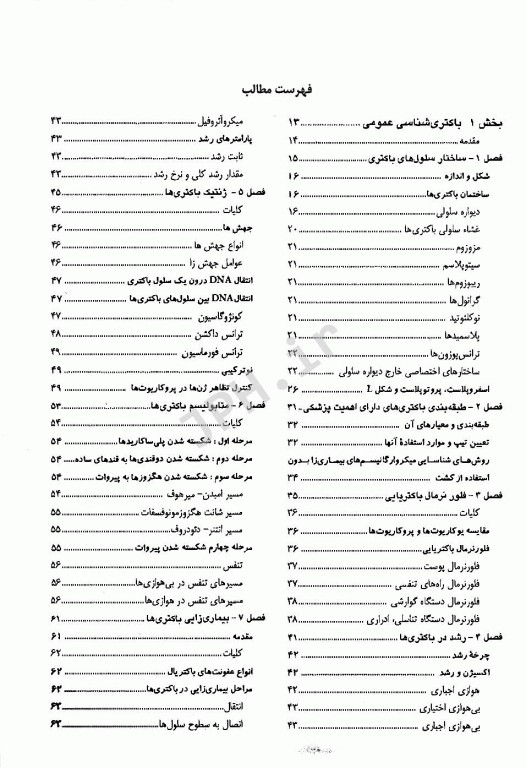 فهرست مطالب
بخش ۱ باکتری‌شناسی عمومی ........ ۱۳
مقدمه ........ ۱۴
فصل ۱ - ساختار سلول‌های باکتری ........ ۱۵
شکل و اندازه ........ ۱۶
ساختمان باکتری‌ها ........ ۱۶
دیواره سلولی ........ ۱۶
غشاء سلولی باکتری‌ها ........ ۲۰
مزوزوم ........ ۲۱
سیتوپلاسم ........ ۲۱
ریبوزوم‌ها ........ ۲۱
گرانول‌ها ........ ۲۱
نوکلئوئید ........ ۲۱
پلاسمیدها ........ ۲۱
ترانس‌پوزون‌ها ........ ۲۲
ساختارهای اختصاصی خارج دیواره سلولی ........ ۲۲
اسفروپلاست، پروتوپلاست و شکل L ........ ۲۶
فصل ۲ - طبقه‌بندی باکتری‌های دارای اهمیت پزشکی ........ ۳۱
طبقه‌بندی و معیارهای آن ........ ۳۲
تعیین تیپ و موارد استفادهٔ آنها ........ ۳۲
روش‌های شناسایی میکروارگانیسم‌های بیماری‌زا بدون
استفاده از کشت ........ ۳۴
فصل ۳ - فلور نرمال باکتریایی ........ ۳۵
کلیات ........ ۳۶
مقایسه یوکاریوت‌ها و پروکاریوت‌ها ........ ۳۶
فلورنرمال باکتریایی ........ ۳۶
فلورنرمال پوست ........ ۳۷
فلورنرمال راه‌های تنفسی ........ ۳۷
فلورنرمال دستگاه گوارشی ........ ۳۸
فلورنرمال دستگاه تناسلی، ادراری ........ ۳۸
فصل ۴ - رشد در باکتری‌ها ........ ۴۱
چرخهٔ رشد ........ ۴۲
اکسیژن و رشد ........ ۴۲
هوازی اجباری ........ ۴۲
بی‌هوازی اختیاری ........ ۴۳
بی‌هوازی اجباری ........ ۴۳
میکروآئروفیل ........ ۴۳
پارامترهای رشد ........ ۴۳
ثابت رشد ........ ۴۳
مقدار رشد کلی و نرخ رشد ........ ۴۳
فصل ۵ - ژنتیک باکتری‌ها ........ ۴۵
کلیات ........ ۴۶
جهش ها ........ ۴۶
انواع جهش ها ........ ۴۶
عوامل جهش زا ........ ۴۶
انتقال DNA درون یک سلول باکتری ........ ۴۷
انتقال DNA بین سلول‌های باکتری‌ها ........ ۴۷
کونژوگاسیون ........ ۴۷
ترانس داکشن ........ ۴۸
ترانس فورماسیون ........ ۴۹
نوترکیبی ........ ۴۹
کنترل تظاهر ژن‌ها در پروکاریوت‌ها ........ ۴۹
فصل ۶ - متابولیسم باکتری‌ها ........ ۵۳
کلیات ........ ۵۴
مرحله اول : شکسته شدن پلی‌ساکاریدها ........ ۵۴
مرحله دوم : شکسته شدن دوقندی‌ها به قندهای ساده ........ ۵۴
مرحله سوم : شکسته شدن هگزوزها به پیروات ........
مسیر امبدن- میرهوف ........ ۵۴
مسیر شانت هگزوزمونوفسفات ........ ۵۵
مسیر انتنر- دئودروف ........ ۵۵
مرحله چهارم شکسته شدن پیروات ........ ۵۵
تنفس ........ ۵۶
مسیرهای تنفس در بی‌هوازی‌ها ........ ۵۶
مسیرهای تنفس در هوازی‌ها ........ ۵۶
فصل ۷ - بیماری‌زایی باکتری‌ها ........ ۶۱
مقدمه ........ ۶۱
کلیات ........ ۶۲
انواع عفونت‌های باکتریال ........ ۶۲
مراحل بیماری‌زایی در باکتری‌ها ........ ۶۲
انتقال ........ ۶۲
اتصال به سطوح سلول‌ها ........ ۶۲
JPH.ir